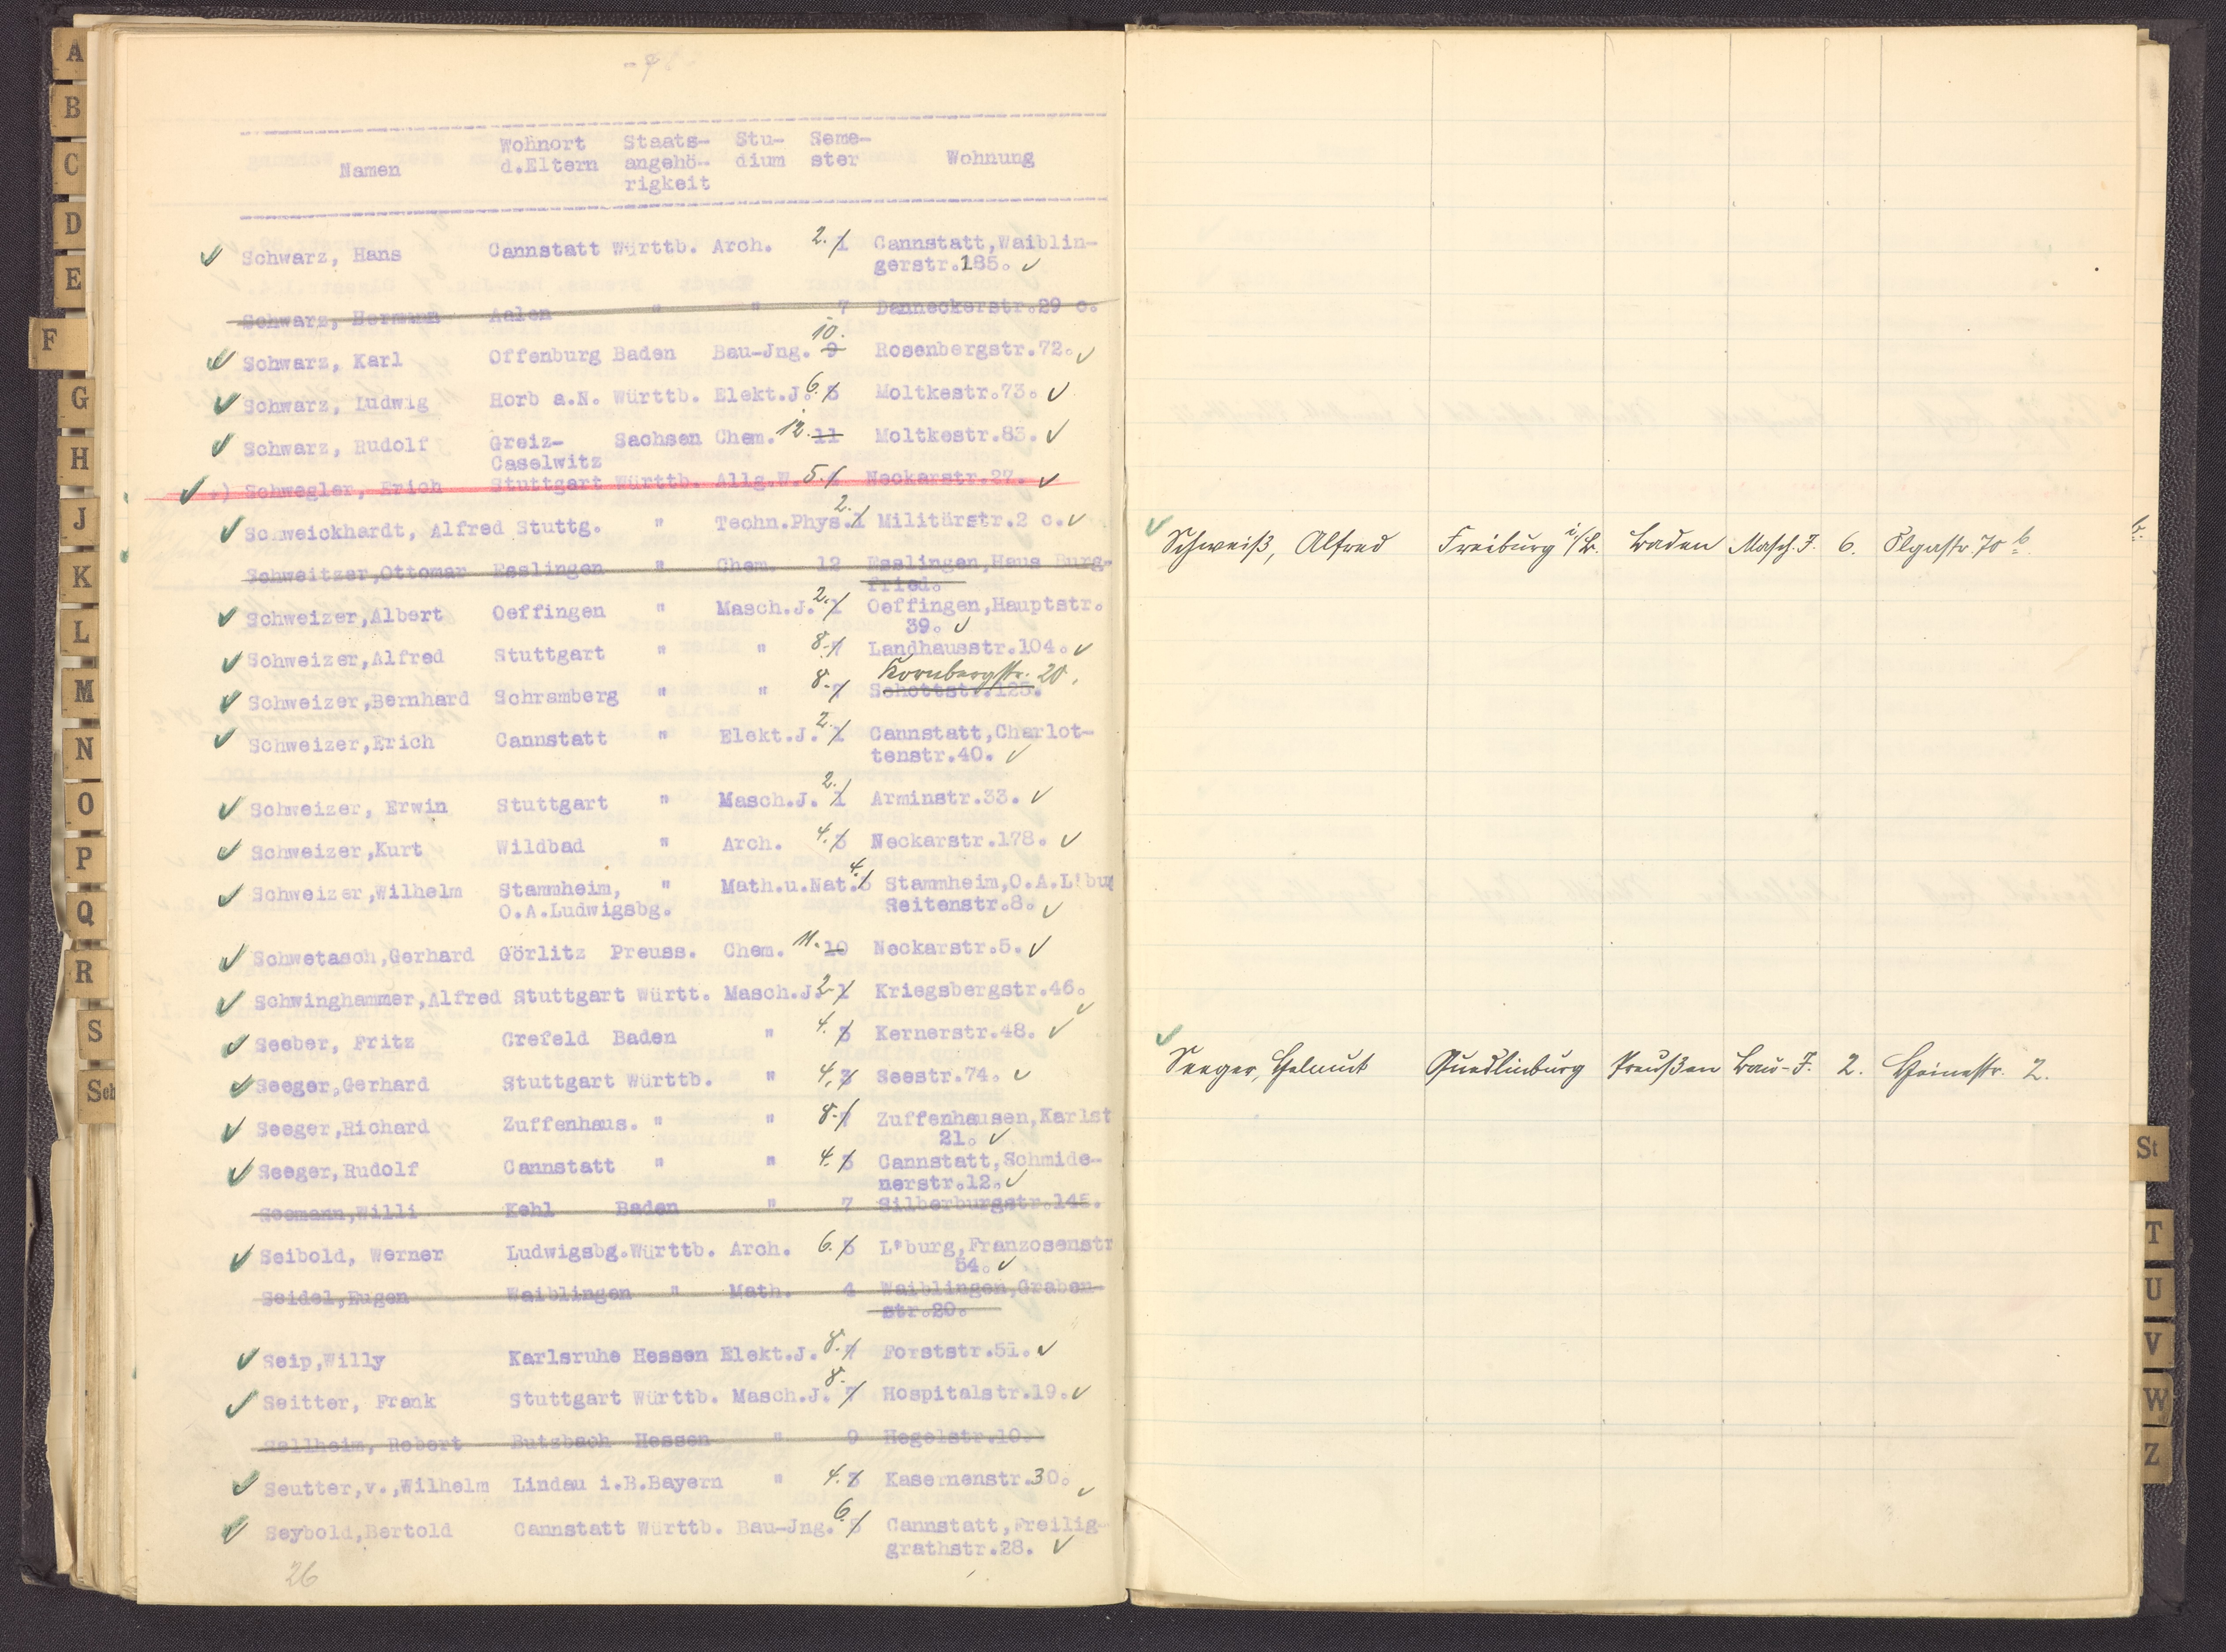 Namen Wohnort d.Eltern Staats- angehö- rigkeit Stu- dium Seme- ster Wohnung
Schwarz, Hans Cannstatt Württb. Arch. 2. 1 Cannstatt,Waiblin-
gerstr.185.
Schwarz, Hermann Aalen " " 7 Danneckerstr.29 c.
Schwarz, Karl Offenburg Baden Bau-Jng. 10. 9 Rosenbergstr.72.
Schwarz, Ludwig Horb a.N. Württb. Elekt.J. 6. 5 Moltkestr.73.
Schwarz, Rudolf Greiz- Sachsen Chem. 12. 11 Moltkestr.83.
Caselwitz
Schwegler, Erich Stuttgart Württb. Allg.W. 5. 4 Neckarstr.27.
Schweickhardt, Alfred Stuttg. " Techn.Phys. 2. 1 Militärstr.2 c.
Schweitzer,Ottomar Esslingen " Chem. 12 Esslingen,Haus Burg-
fried.
Schweizer,Albert Oeffingen " Masch.J. 2. 1 Oeffingen,Hauptstr.
39.
Schweizer,Alfred Stuttgart " " 8. 7 Landhausstr.104.
Kornbergstr. 20.
Schweizer,Bernhard Schramberg " " 8. 7 Schottstr.125.
Schweizer,Erich Cannstatt " Elekt.J. 2. 1 Cannstatt,Charlot-
tenstr.40.
Schweizer, Erwin Stuttgart " Masch.J. 2. 1 Arminstr.33.
Schweizer,Kurt Wildbad " Arch. 4. 3 Neckarstr.178.
Schweizer,Wilhelm Stammheim, " Math.u.Nat. 4. 3 Stammheim,O.A.L'bur
O.A.Ludwigsbg. Seitenstr.8.
Schwetasch,Gerhard Görlitz Preuss. Chem. 11. 10 Neckarstr.5.
Schwinghammer,Alfred Stuttgart Württ. Masch.J. 2. 1 Kriegsbergstr.46.
Seeber, Fritz Crefeld Baden " 4. 3 Kernerstr.48.
Seeger,Gerhard Stuttgart Württb. " 4. 3 Seestr.74.
Seeger,Richard Zuffenhaus. " " 8. 7 Zuffenhausen,Karlst
21.
Seeger,Rudolf Cannstatt " " 4. 3 Cannstatt,Schmide-
nerstr.12.
Seemann,Willi Kehl Baden " 7 Silberburgstr.145.
Seibold, Werner Ludwigsbg.Württb. Arch. 6. 5 L'burg,Franzosenstr
54.
Seidel,Eugen Waiblingen " Math. 4 Waiblingen,Graben-
str.20.
Seip,Willy Karlsruhe Hessen Elekt.J. 8. 7 Forststr.51.
Seitter, Frank Stuttgart Württb. Masch.J. 8. 7 Hospitalstr.19.
Sellheim, Robert Butzbach Hessen " 9 Hegelstr.10.
Seutter,v.,Wilhelm Lindau i.B.Bayern " 4. 3 Kasernenstr.30.
Seybold,Bertold Cannstatt Württb. Bau-Jng. 6. 5 Cannstatt,Freilig-
grathstr.28.
26
Schweiß, Alfred Freiburg i/B. Baden Masch. J. 6. Olgastr. 70 b.
Seeger, Helmut Quedlinburg Preußen Bau-J. 2. Heinestr. 2.
A
B
C
D
E
F
G
H
J
K
L
M
N
O
P
Q
R
S
Sch
St
T
U
V
W
Z